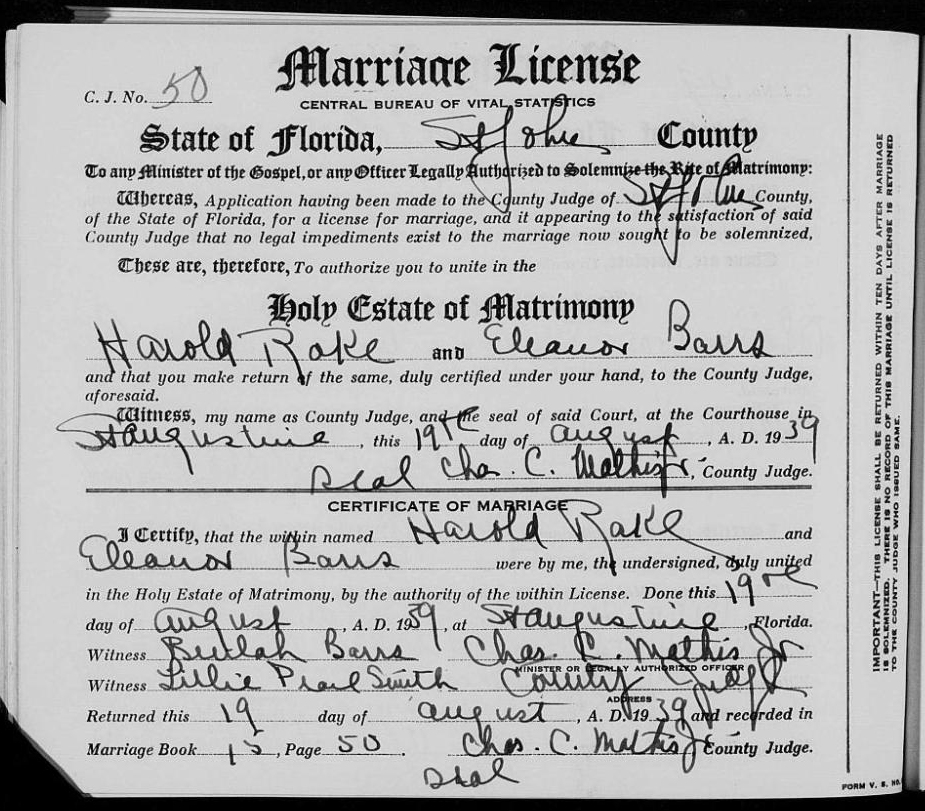 Marriage License
C. J. No. 50
CENTRAL BUREAU OF VITAL STATISTICS
State of Florida, St Johns County
To any Minister of the Gospel, or any Officer Legally Authorized to Solemnize the Rite of Matrimony:
Whereas, Application having been made to the County Judge of St Johns County,
of the State of Florida, for a license for marriage, and it appearing to the satisfaction of said
County Judge that no legal impediments exist to the marriage now sought to be solemnized,
These are, therefore, To authorize you to unite in the
Holy Estate of Matrimony
Harold Rake and Eleanor Barrs
and that you make return of the same, duly certified under your hand, to the County Judge,
aforesaid.
Witness, my name as County Judge, and the seal of said Court, at the Courthouse in
St augustine, this 19th day of august, A. D. 1939
Seal Chas. C. Mathis Jr., County Judge.
CERTIFICATE OF MARRIAGE
I Certify, that the within named Harold Rake and
Eleanor Barrs were by me, the undersigned, duly united
in the Holy Estate of Matrimony, by the authority of the within License. Done this 19th
day of august, A. D. 1939, at St augustine, Florida.
Witness Beulah Barrs Chas. C. Mathis Jr
MINISTER OR LEGALLY AUTHORIZED OFFICER
Witness Lillie Pearl Smith County Judge
ADDRESS
Returned this 19 day of august, A. D. 1939 and recorded in
Marriage Book 15, Page 50. Chas. C. Mathis Jr County Judge.
Seal
IMPORTANT—THIS LICENSE SHALL BE RETURNED WITHIN TEN DAYS AFTER MARRIAGE
IS SOLEMNIZED. THERE IS NO RECORD OF THIS MARRIAGE UNTIL LICENSE IS RETURNED
TO THE COUNTY JUDGE WHO ISSUED SAME.
FORM V. S. NO.